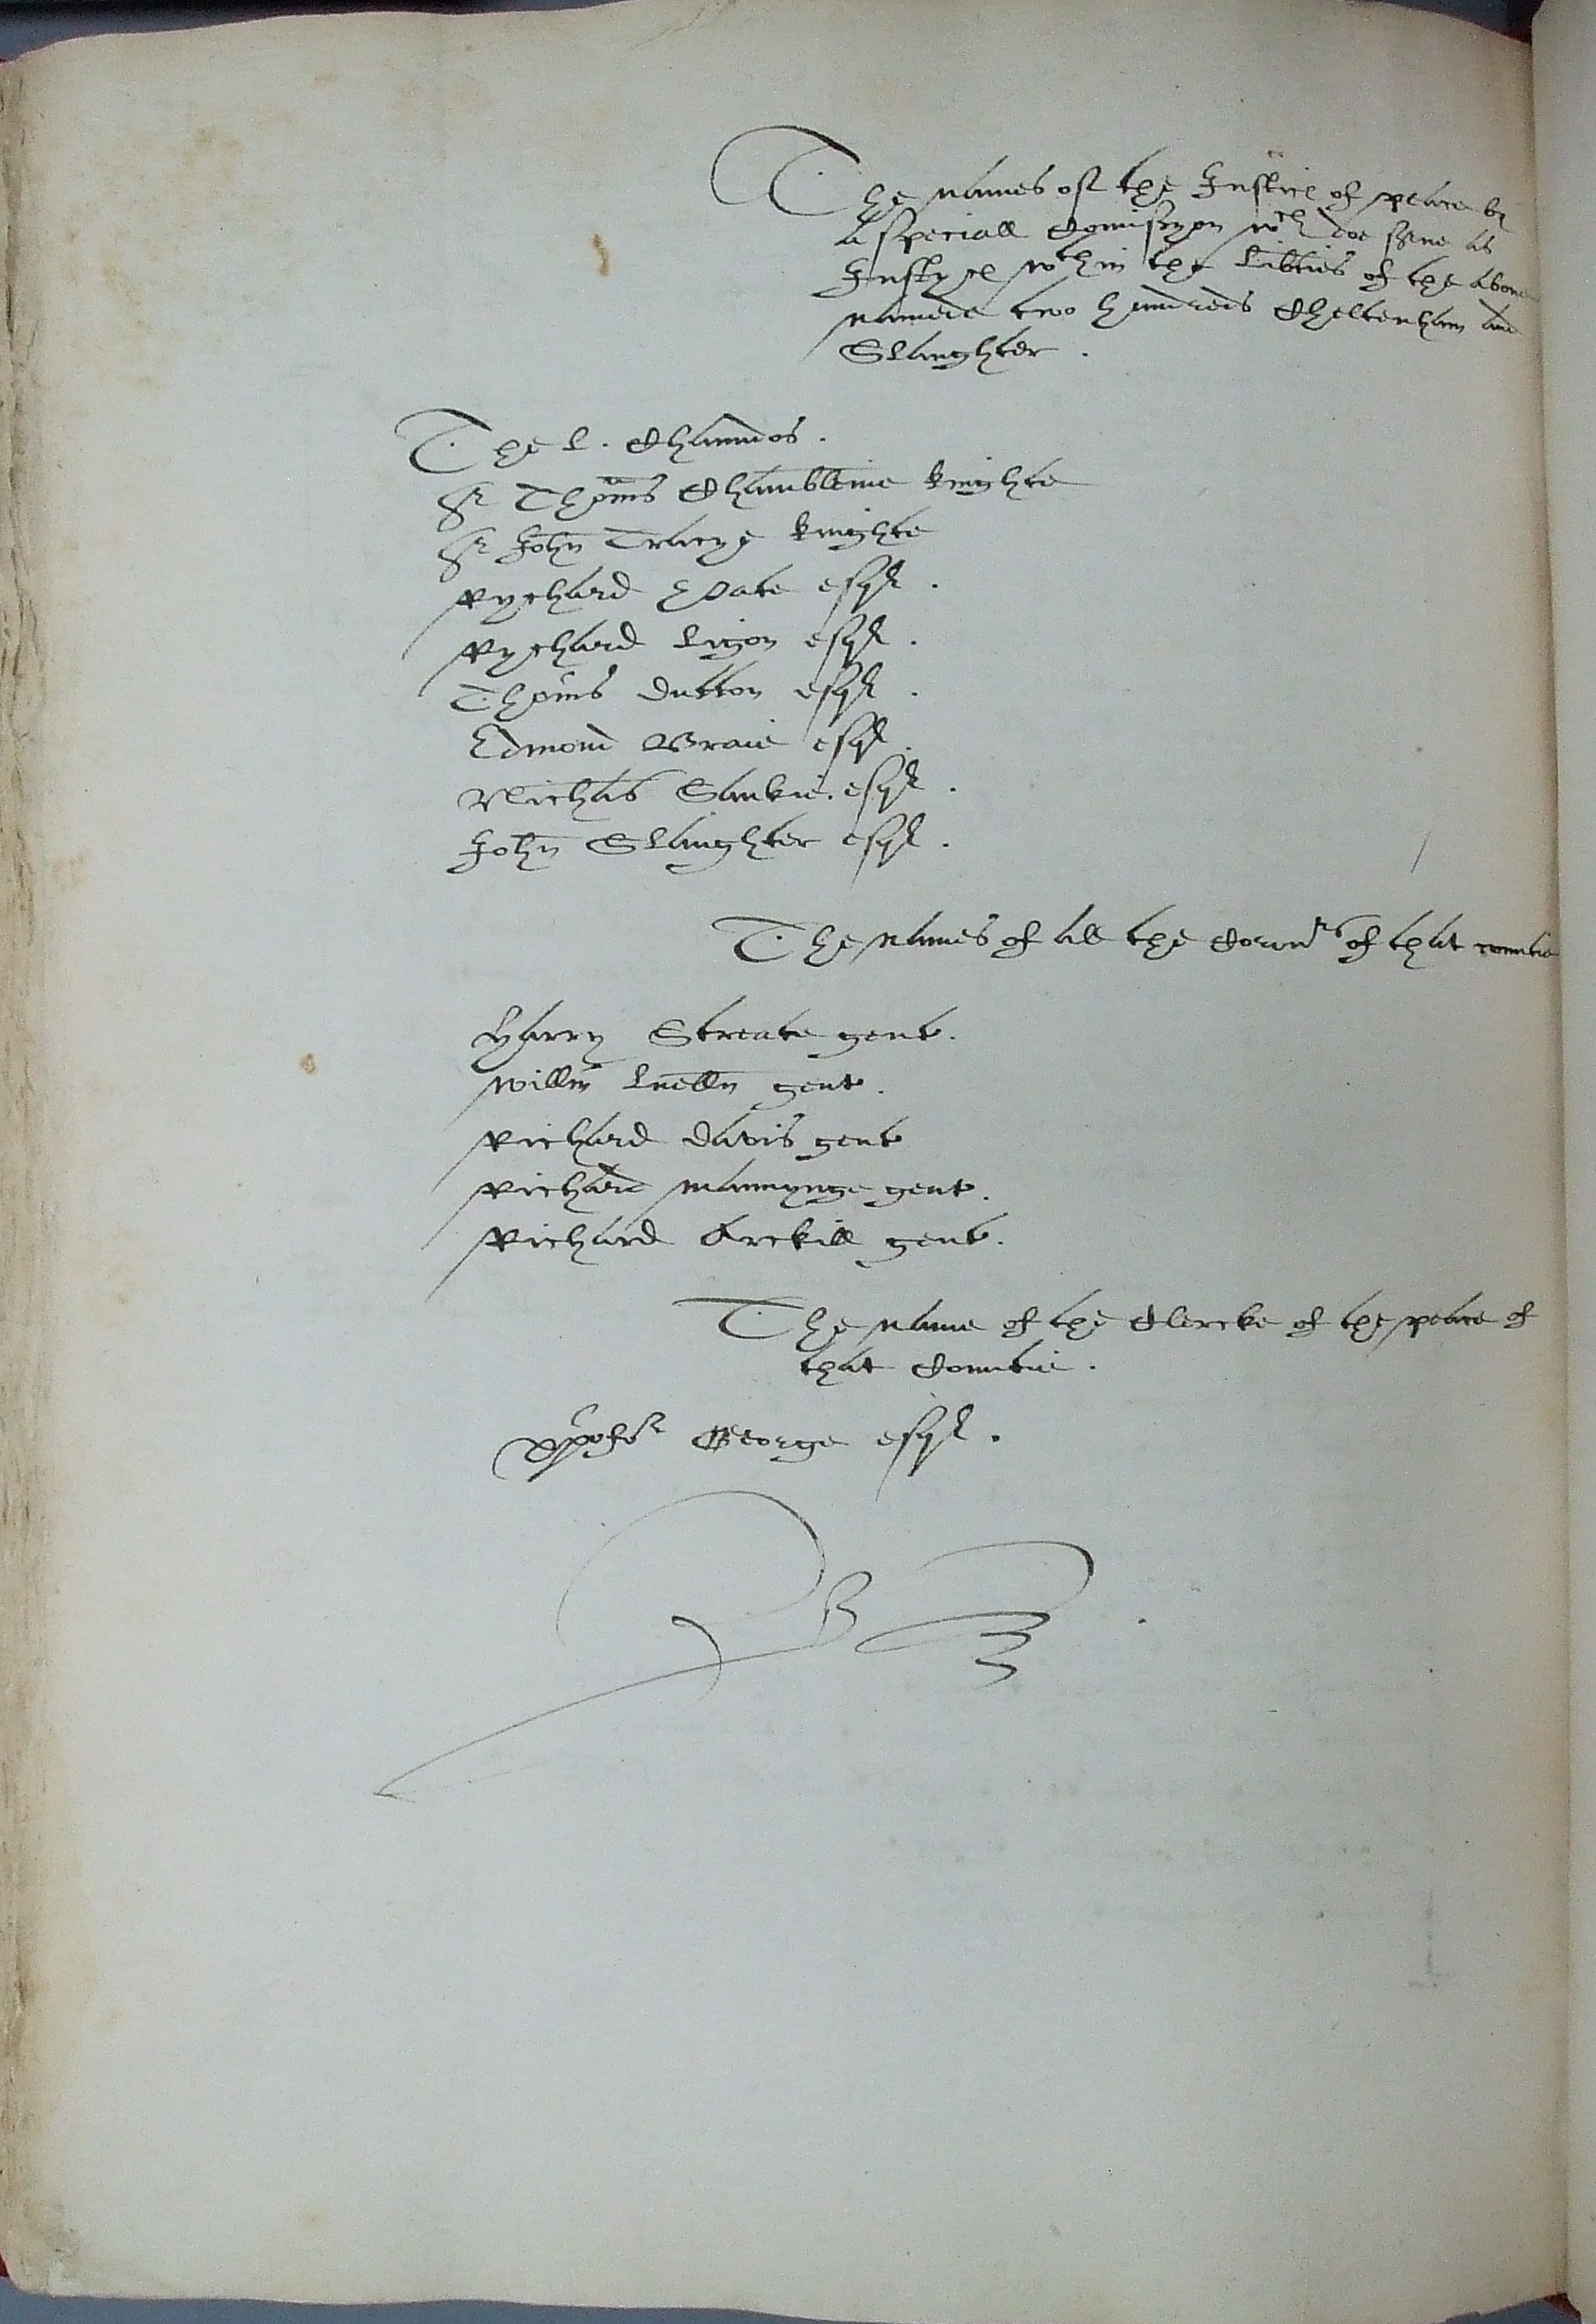 The names of the Justices of peace by
a speciall Comissyon wch doe serve as
Justyces wthin the Libties of the above
named two hundreds Cheltenham and
Slaughter .
The L. Channdos .
Sr Thoms Chambleine knighte
Sr John Tracye knighte
Rychard Pate esqr .
Rychard Ligon esqr .
Thoms Dutton esqr .
Edmond Braie esqr .
Nichas Sankie. esqr .
John Slaughter esqr .
The names of all the Coronrs of that countie
Harry Streate gent.
Willm Luelln gent .
Richard Davis gent
Richard Mannynge gent .
Richard Arckill gent .
The name of the Clercke of the peace of
that Countie .
George esqr .